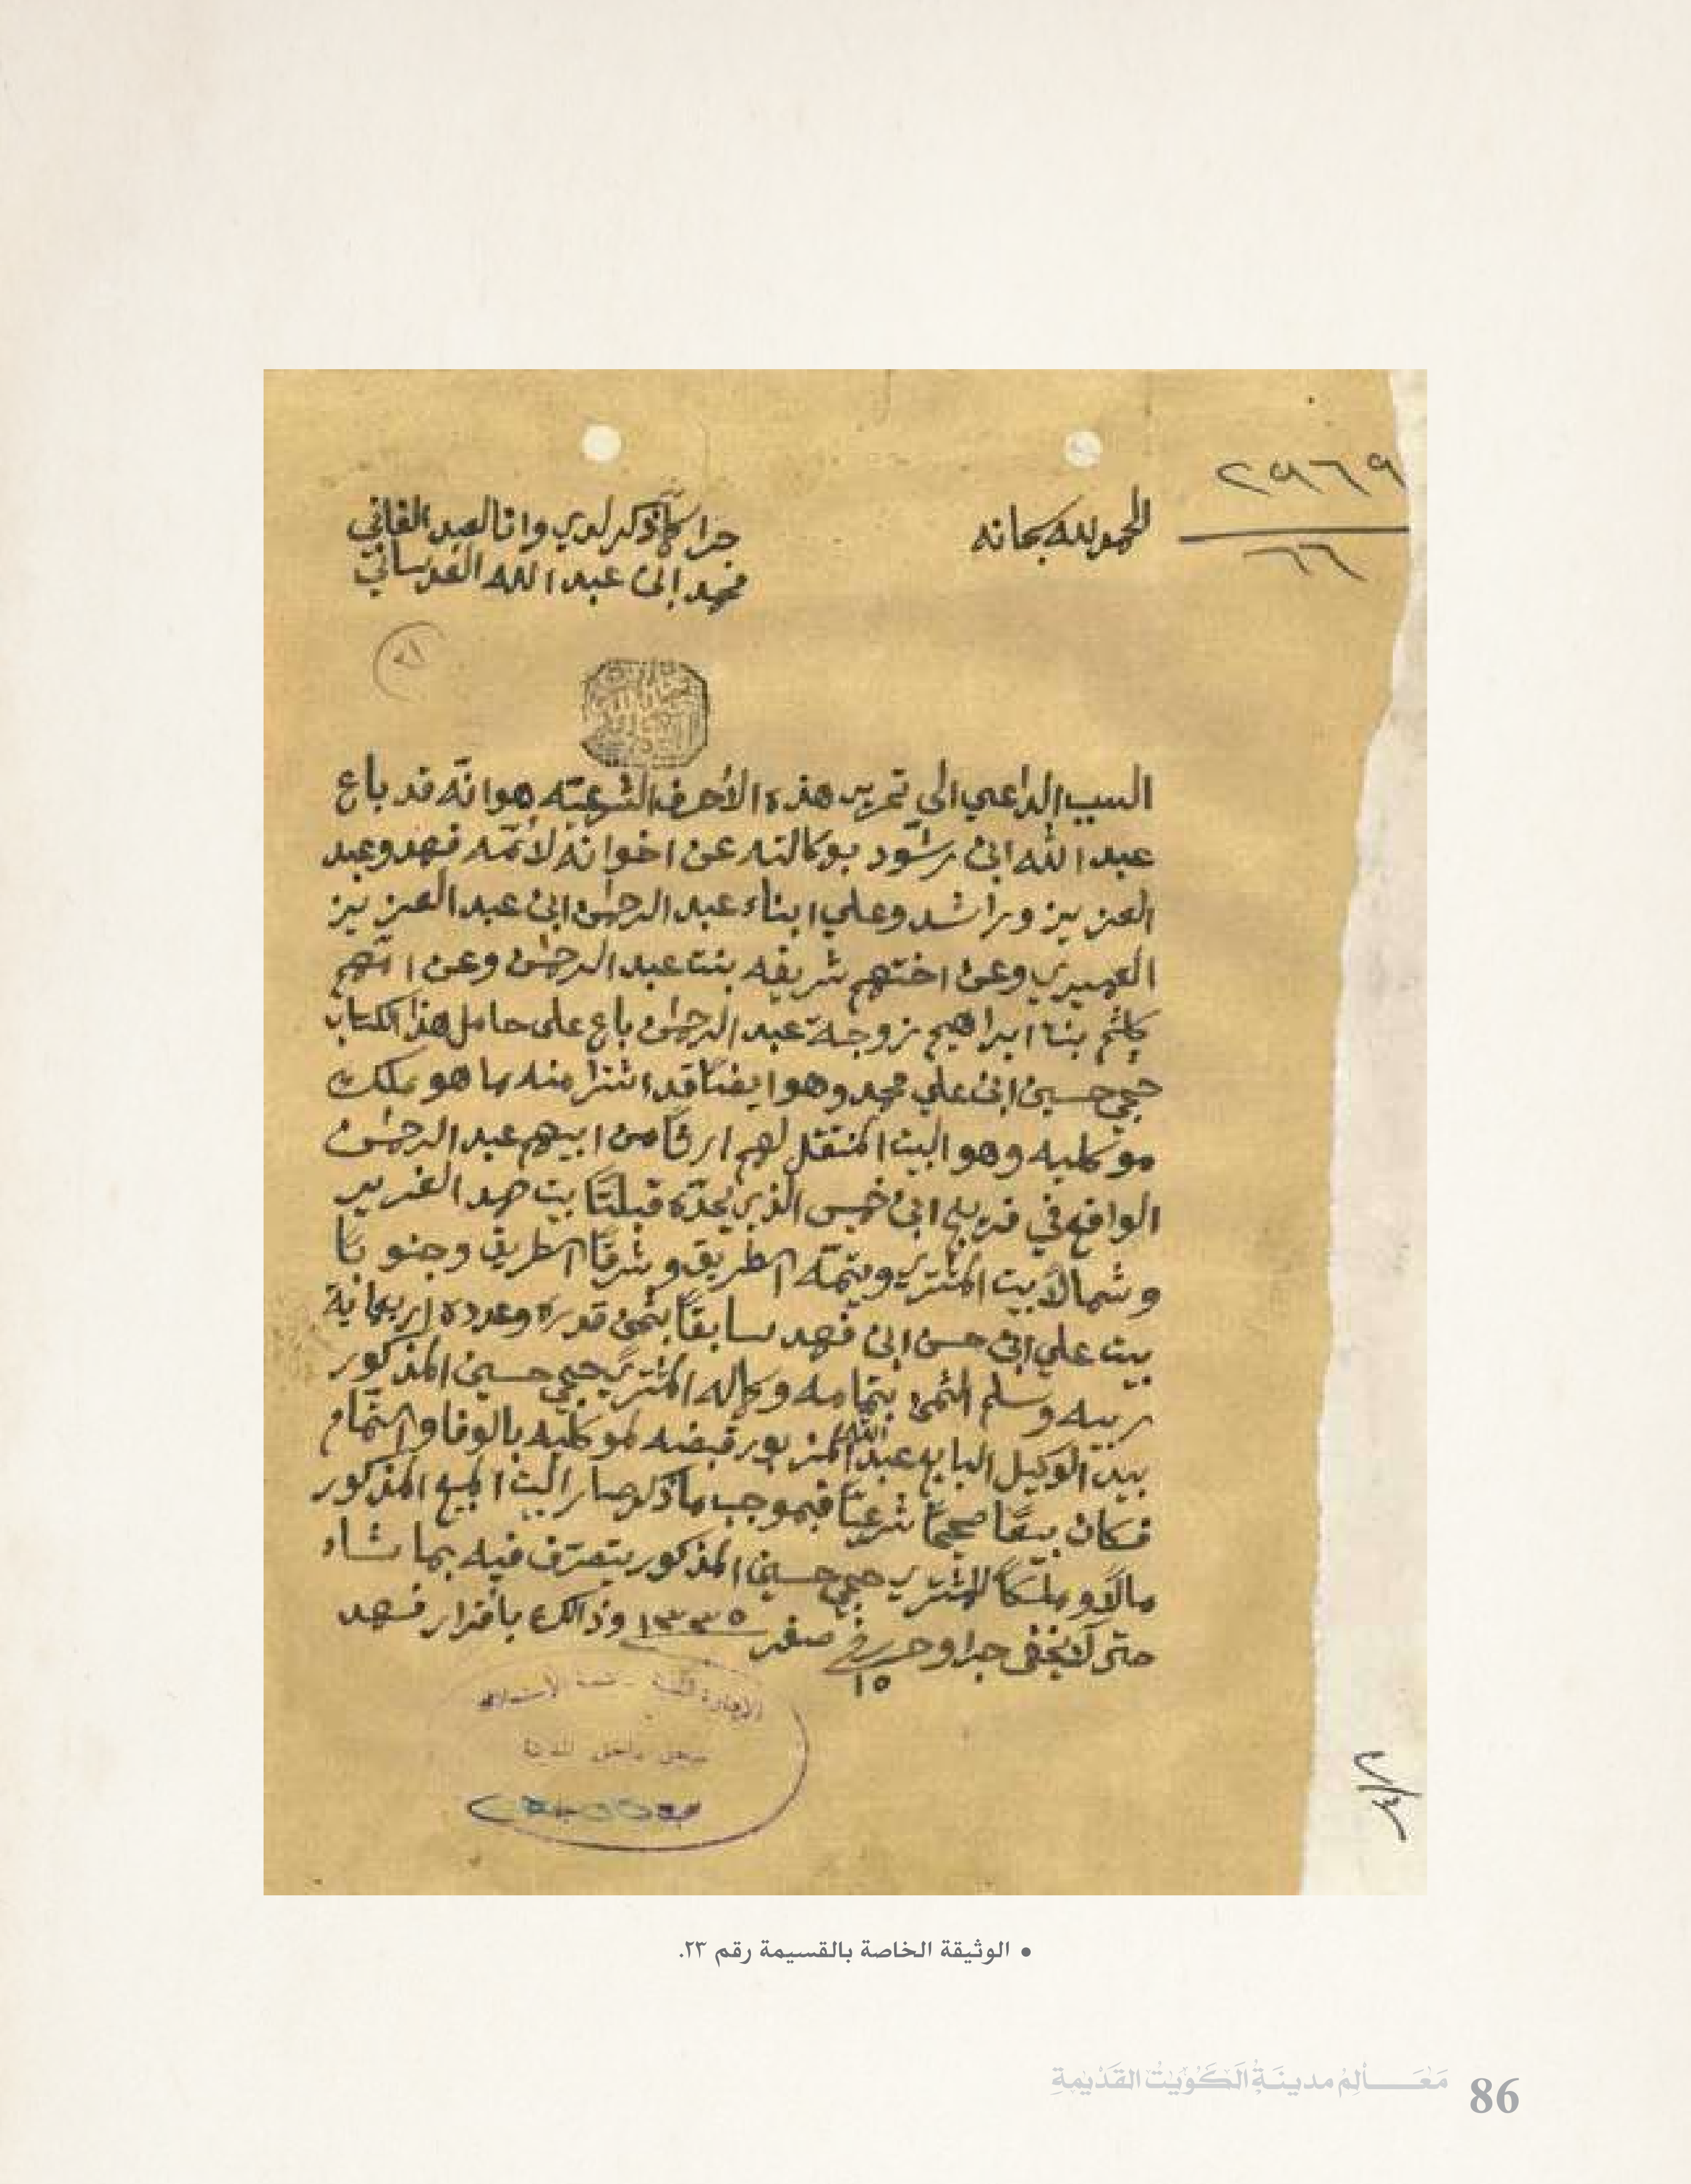 ٢٩٦٩
٦٦
الحمد لله سبحانه
جرا كما ذكر لدي وانا العبد الفاني
محمد ابن عبد الله العدساني
السبب الداعي الى تحرير هذه الأحرف الشرعيّه هو انّه قد باع
عبد الله ابن رشود بوكالته عن اخوانه لأمّه فهد وعبد
العزيز وراشد وعلي ابناء عبد الرحمٰن ابن عبد العزيز
وعن اختهم شريفه بنت عبد الرحمٰن وعن امّهم
كلثم بنت ابراهيم زوجة عبد الرحمٰن باع على حامل هذا الكتاب
حجي حسين ابن علي محمد وهو ايضاً قد اشترا منه ما هو ملك
موكليه وهو البيت المنتقل لهم ارثاً من ابيهم عبد الرحمٰن
الواقع في فريج ابن خميس الذي يحدّه قبلتاً بيت حمد
وشمالاً بيت المشتري ويتمّه الطريق وشرقاً الطريق وجنوباً
بيت علي ابن حسن ابن فهد سابقاً بثمن قدره وعدده اربعماية
ربيه وسلم الثمن بتمامه وكماله المشتري حجي حسين المذكور
بيد الوكيل البايع عبد الله المزبور قبضه لموكليه بالوفا والتمام
فكان بيعًا صحيحًا شرعيّاً فبموجب ما ذكر صار البيت المبيع المذكور
مالاً وملكاً للمشتري حجي حسين المذكور يتصرّف فيه بما شاء
حتى لا يخفى جرا وحرر في ١٥ صفر ١٣٣٥ وذالك باقرار فهد
• الوثيقة الخاصة بالقسيمة رقم ٢٣.
مَعَالِمُ مدينَةُ الكُوَيْتُ القَدْيمةِ
86